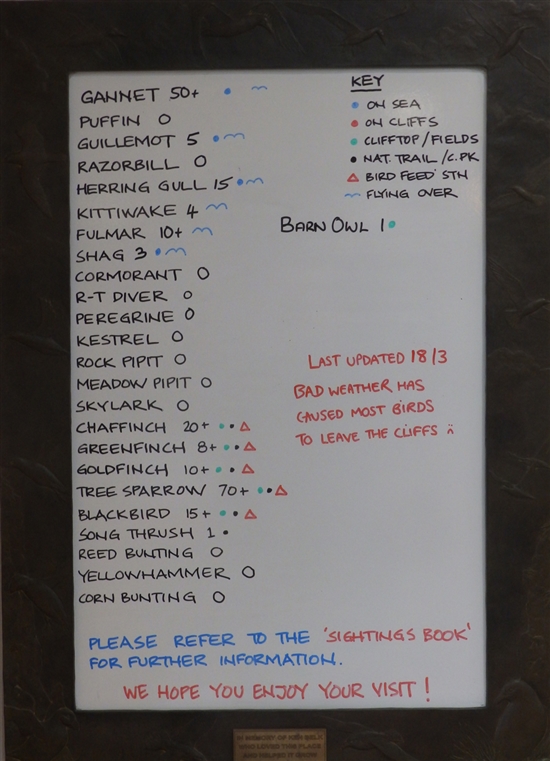 GANNET 50+
PUFFIN 0
GUILLEMOT 5
RAZORBILL 0
HERRING GULL 15
KITTIWAKE 4
FULMAR 10+
SHAG 3
CORMORANT 0
R-T DIVER 0
PEREGRINE 0
KESTREL 0
ROCK PIPIT 0
MEADOW PIPIT 0
SKYLARK 0
CHAFFINCH 20+
GREENFINCH 8+
GOLDFINCH 10+
TREE SPARROW 70+
BLACKBIRD 15+
SONG THRUSH 1
REED BUNTING 0
YELLOWHAMMER 0
CORN BUNTING 0
KEY
ON SEA
ON CLIFFS
CLIFFTOP/FIELDS
NAT. TRAIL/C.PK
BIRD FEED STN
FLYING OVER
BARN OWL 1
LAST UPDATED 18/3
BAD WEATHER HAS
CAUSED MOST BIRDS
TO LEAVE THE CLIFFS
PLEASE REFER TO THE 'SIGHTINGS BOOK'
FOR FURTHER INFORMATION.
WE HOPE YOU ENJOY YOUR VISIT!
IN MEMORY OF
WHO LOVED THIS PLACE
AND HELPED IT GROW